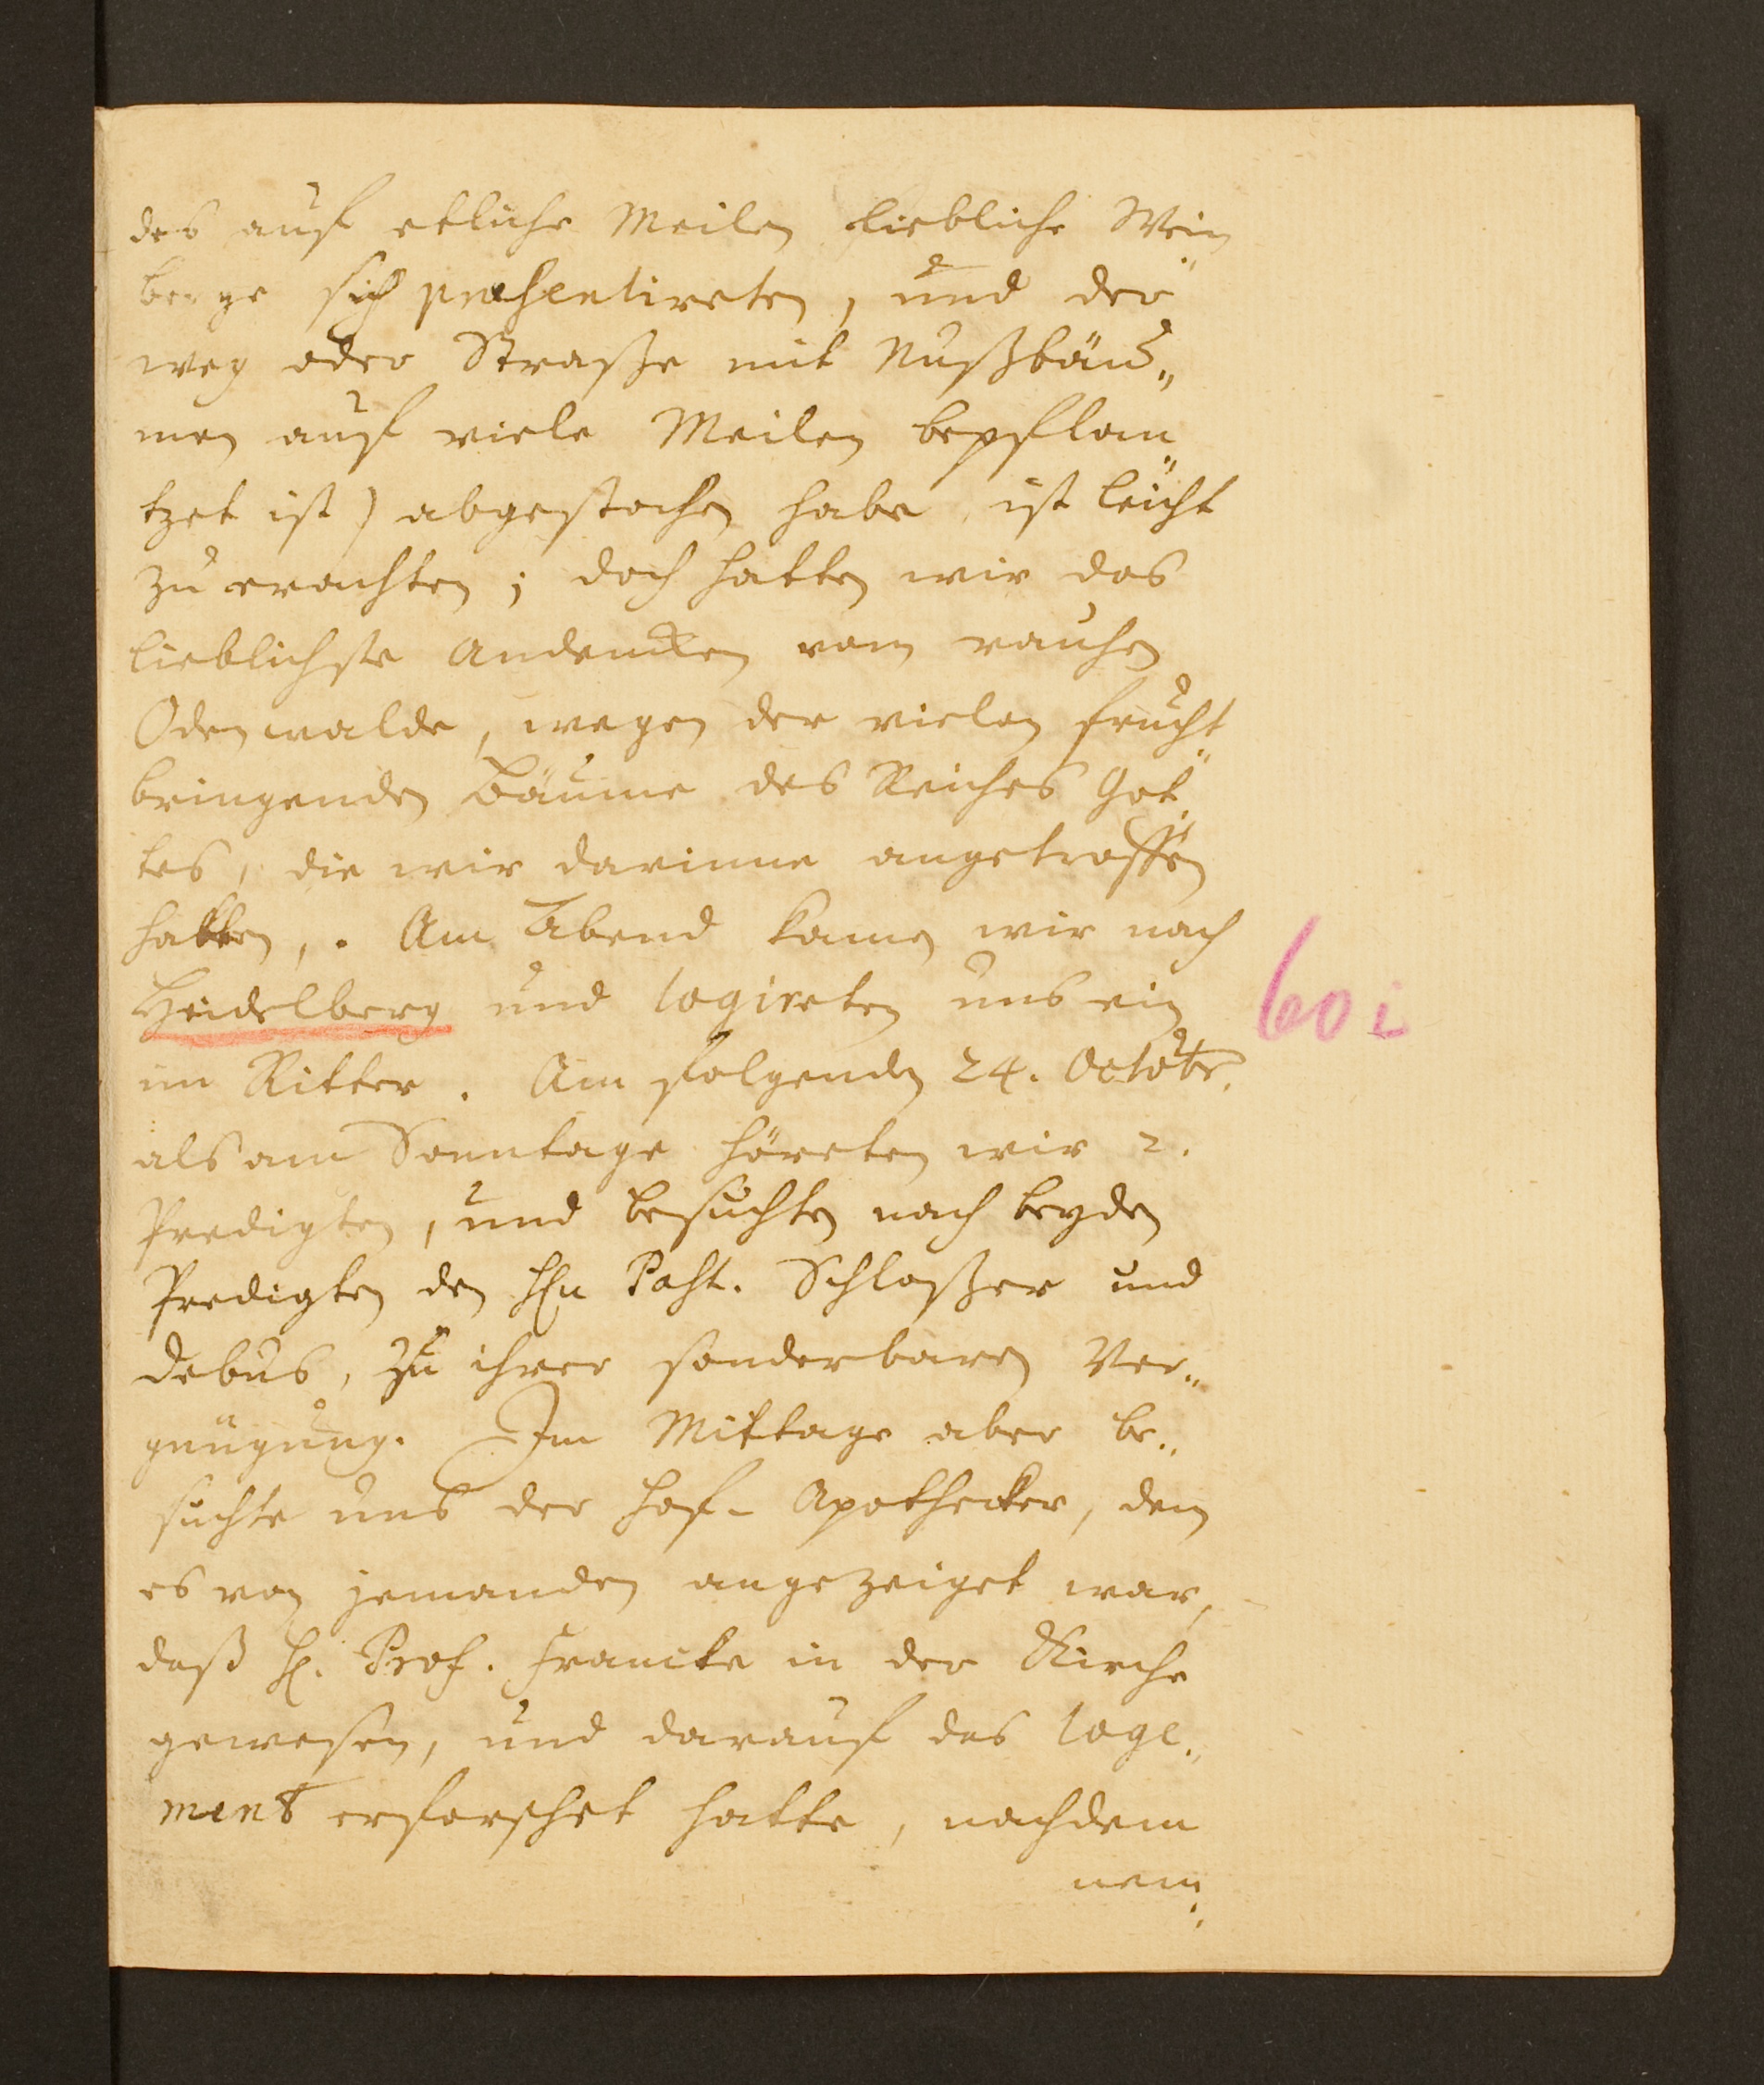 des auf etliche Meilen liebliche Wein„
berge sich præsentireten, und der
weg oder Straße mit Nußbäu„
men auf viele Meilen bepflan„
tzet ist) abgestochen habe, ist leicht
zu erachten; doch hatten wir das
lieblichste Andencken vom rauhen
Odenwalde, wegen der vielen frucht„
bringenden Bäume des Reiches Got„
tes, die wir darinne angetroffen
hatten,. Am Abend kamen wir nach
Heidelberg und logireten uns ein
im Ritter. Am folgenden 24. Octobr.
als am Sonntage höreten wir 2.
Predigten, und besuchten nach beyden
Predigten den Hln Past. Schloßer und
Debus, zu ihrer sonderbaren Ver„
gnügung. Im Mittage aber be„
suchte uns der Hof-Apothecker, dem
es von jemanden angezeiget war,
daß H. Prof. Francke in der Kirche
gewesen, und darauf das loge„
ment erforschet hatte, nachdem
nem„
60i